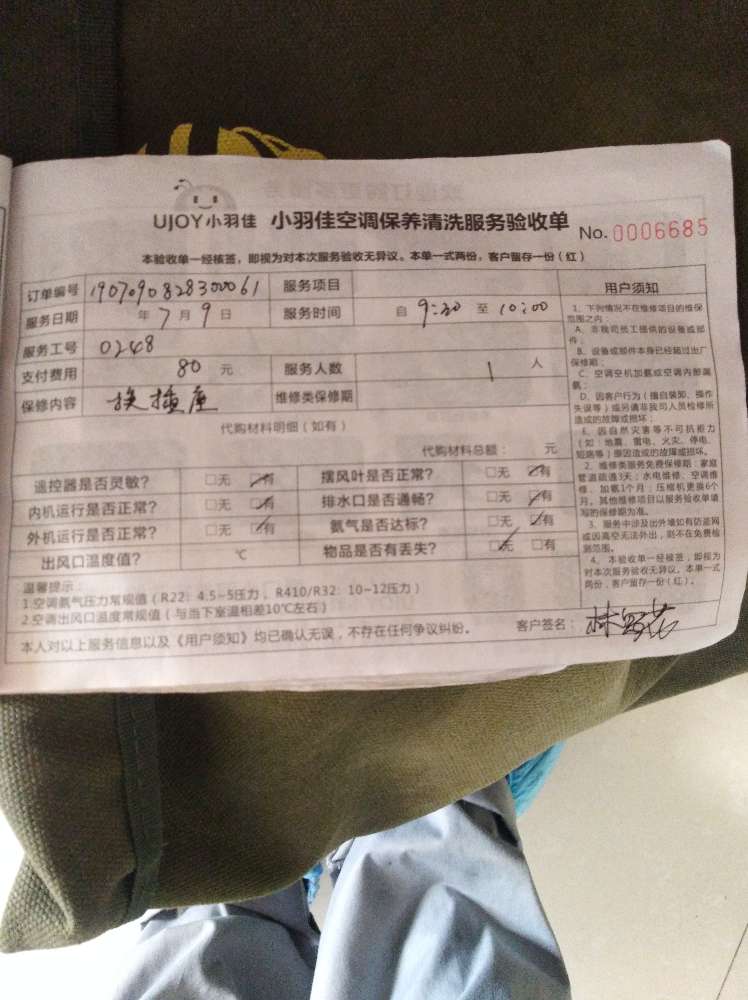 UJOY小羽佳 小羽佳空调保养清洗服务验收单 No. 0006685
本验收单一经核签，即视为对本次服务验收无异议。本单一式两份，客户留存一份（红）
订单编号 190709082830061 服务项目
服务日期 年7月9日 服务时间 自 9:30 至 10:00
服务工号 0248
支付费用 80 元 服务人数 1 人
保修内容 换插座 维修类保修期
代购材料明细（如有）
代购材料总额： 元
遥控器是否灵敏？ □无 ☑有 摆风叶是否正常？ □无 ☑有
内机运行是否正常？ □无 ☑有 排水口是否通畅？ □无 ☑有
外机运行是否正常？ □无 ☑有 氨气是否达标？ □无 ☑有
出风口温度值？ ℃ 物品是否有丢失？ ☑无 □有
温馨提示：
1.空调氨气压力常规值（R22：4.5~5压力，R410/R32：10~12压力）
2.空调出风口温度常规值（与当下室温相差10℃左右）
本人对以上服务信息以及《用户须知》均已确认无误，不存在任何争议纠纷。 客户签名：
用户须知
1、下列情况不在维修项目的维保
范围之内：
A、非我司员工提供的设备或部
件；
B、设备或部件本身已经超过出厂
保修期；
C、空调空机加氨或空调内部漏
氨；
D、因客户行为（擅自装卸、操作
失误等）或另请非我司人员检修所
造成的故障或损坏；
E、因自然灾害等不可抗拒力
（如：地震、雷电、火灾、停电、
短路等）原因造成的故障或损坏。
2、维修类服务免费保修期：家庭
管道疏通3天；水电维修、空调维
修、加氨1个月；压缩机更换6个
月，其他维修项目以服务验收单填
写的保修期为准。
3、服务中涉及出外墙如有防盗网
或因高空无法外出，则不在免费检
测范围。
4、本验收单一经核签，即视为
对本次服务验收无异议。本单一式
两份，客户留存一份（红）。